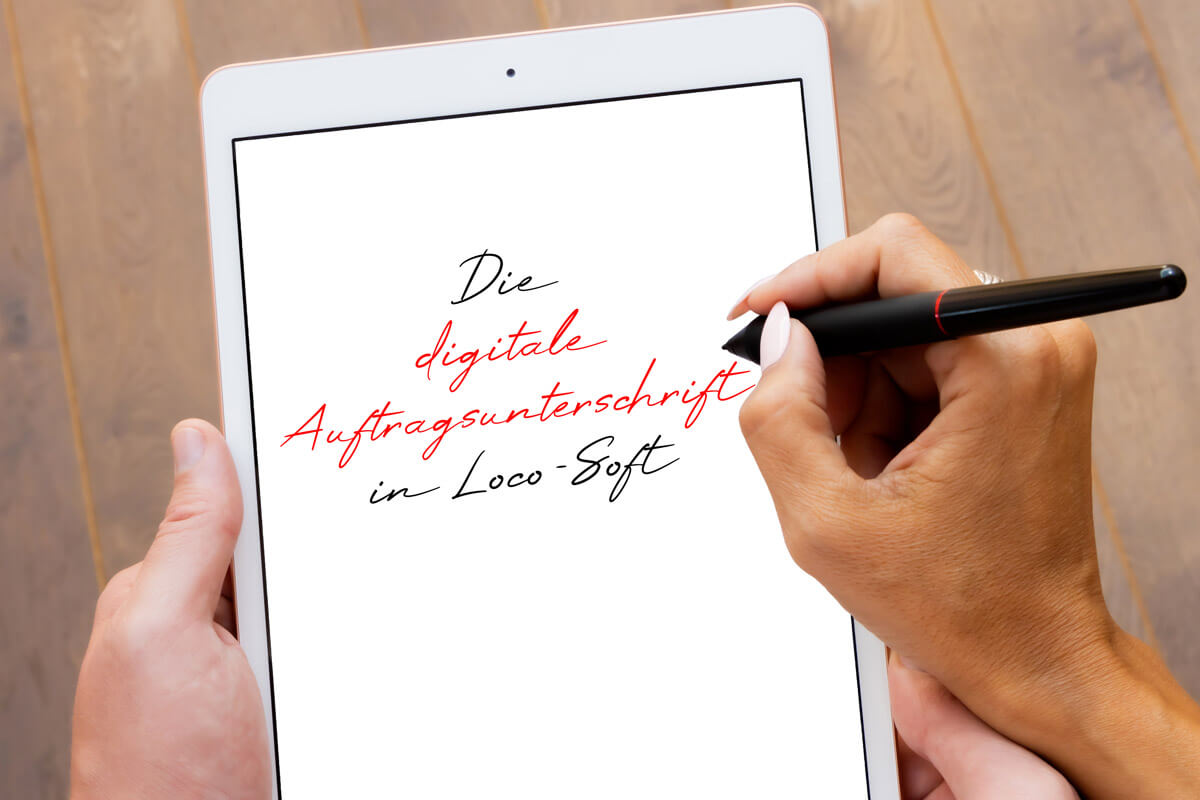 Die
digitale
Auftragsunterschrift
in Loco-Soft